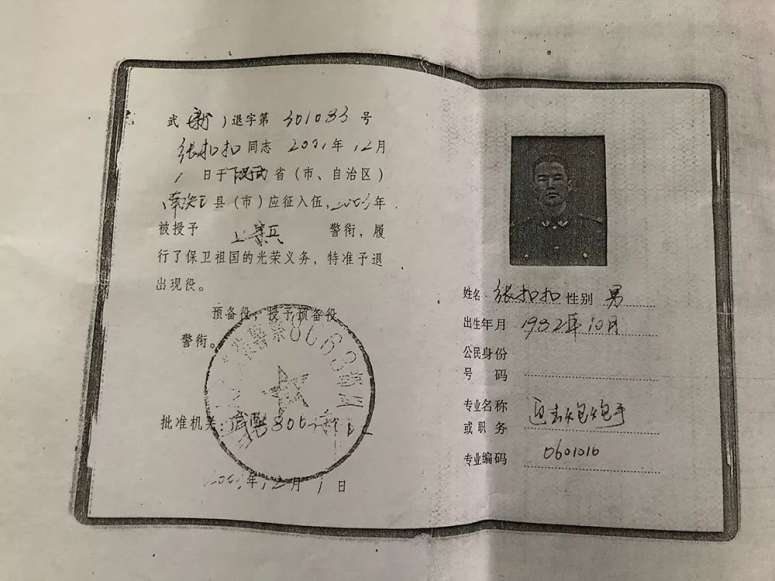 武 新 ) 退字第 301083 号
张扣扣 同志 2001 年 12 月
1 日于 陕西 省 (市、自治区)
南郑 县 (市) 应征入伍, 2003 年
被授予 上等兵 警衔, 履
行了保卫祖国的光荣义务, 特准予退
出现役。
预备役, 授予预备役
警衔。
批准机关:
年 12 月 1 日
姓名 张扣扣 性别 男
出生年月 1982年10月
公民身份
号 码
专业名称 迫击炮炮手
或职务
专业编码 0601010